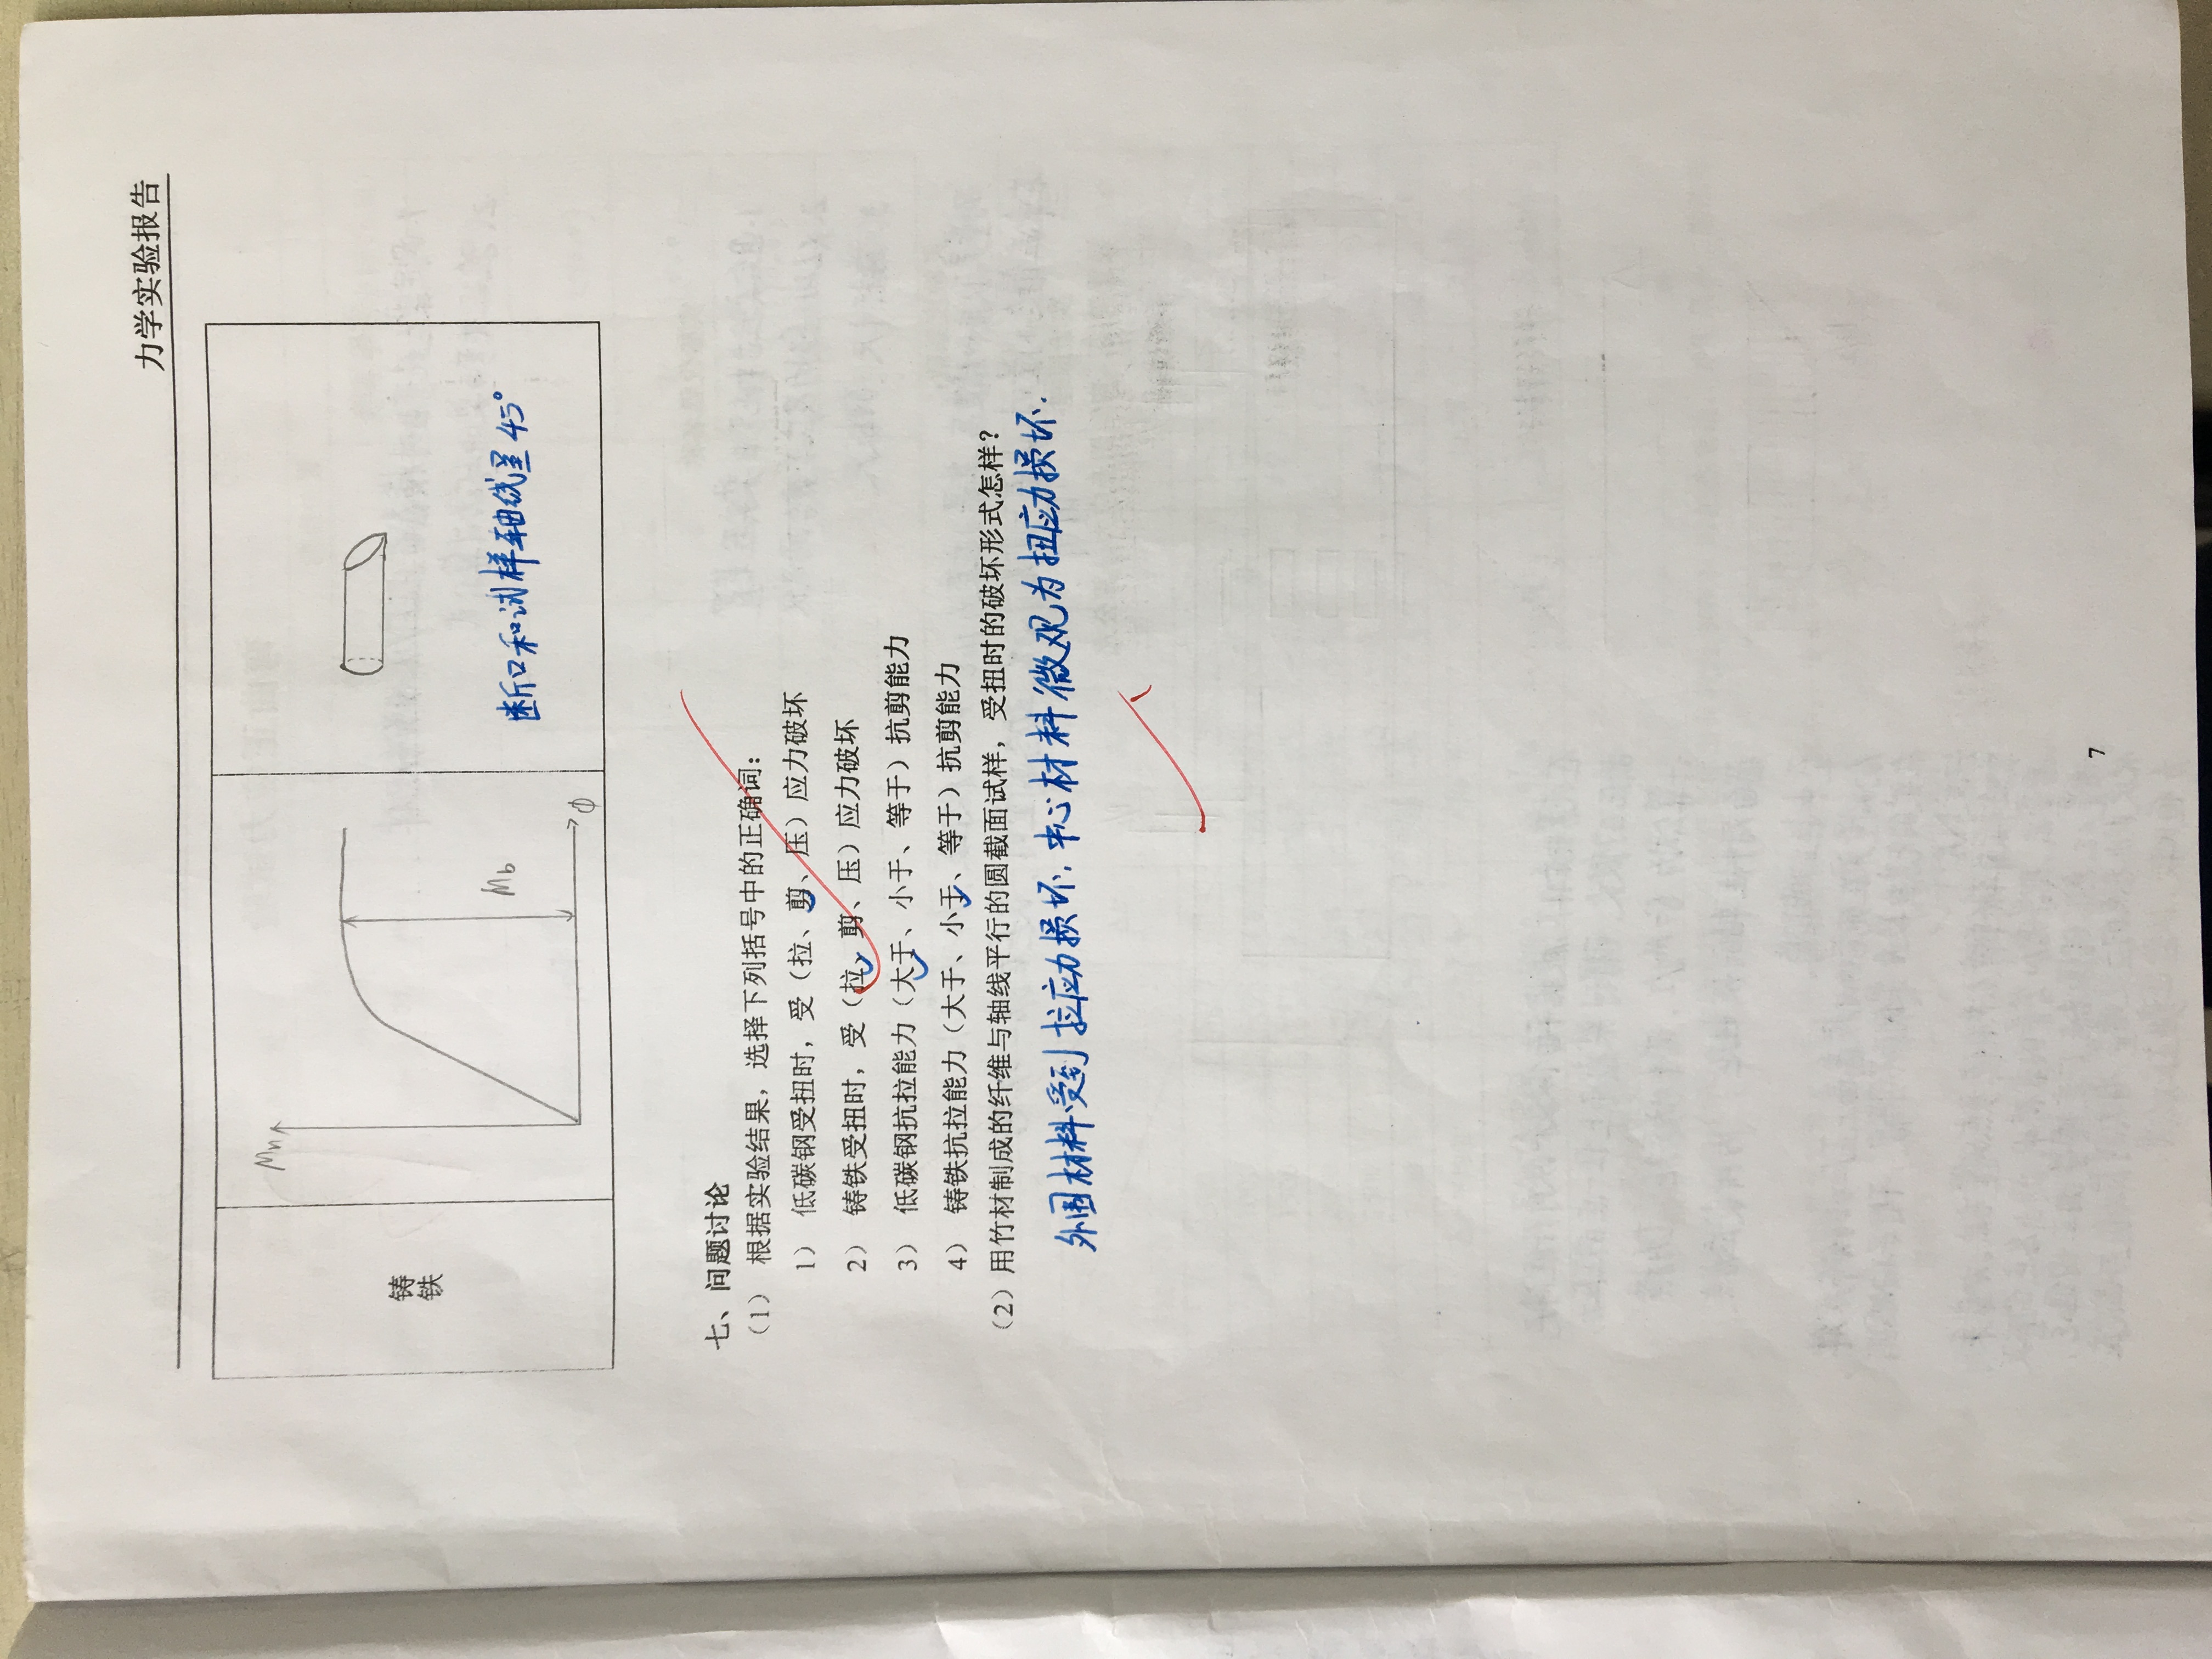 力学实验报告
铸
铁
Mn
Mb
φ
断口和试样轴线呈45°
七、问题讨论
(1) 根据实验结果，选择下列括号中的正确词：
1) 低碳钢受扭时，受（拉、剪、压）应力破坏
2) 铸铁受扭时，受（拉、剪、压）应力破坏
3) 低碳钢抗拉能力（大于、小于、等于）抗剪能力
4) 铸铁抗拉能力（大于、小于、等于）抗剪能力
(2) 用竹材制成的纤维与轴线平行的圆截面试样，受扭时的破坏形式怎样？
外围材料受到拉应力损坏.中心材料微观为扭应力损坏.
7